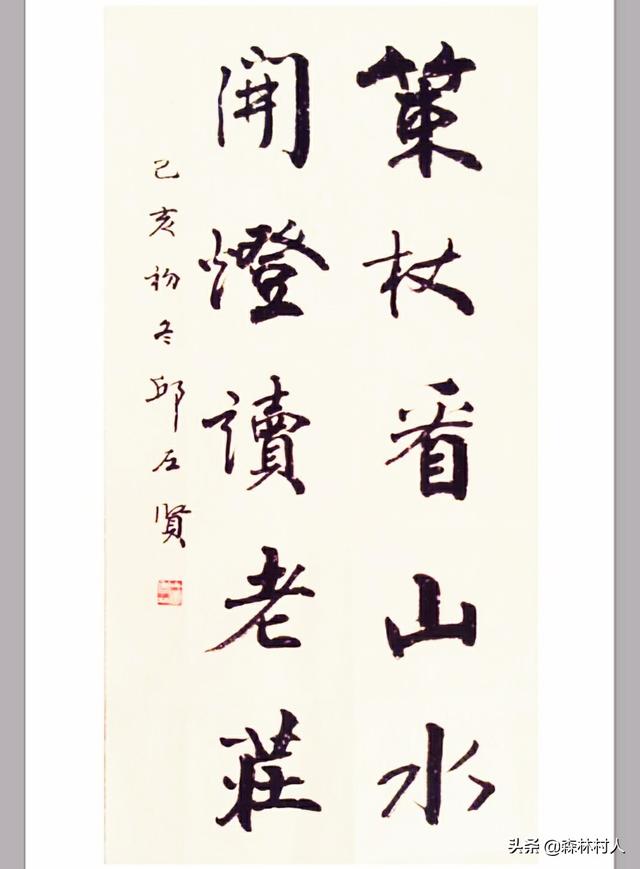 策杖看山水
開燈讀老莊
己亥初冬邱左賢
头条 @森林村人